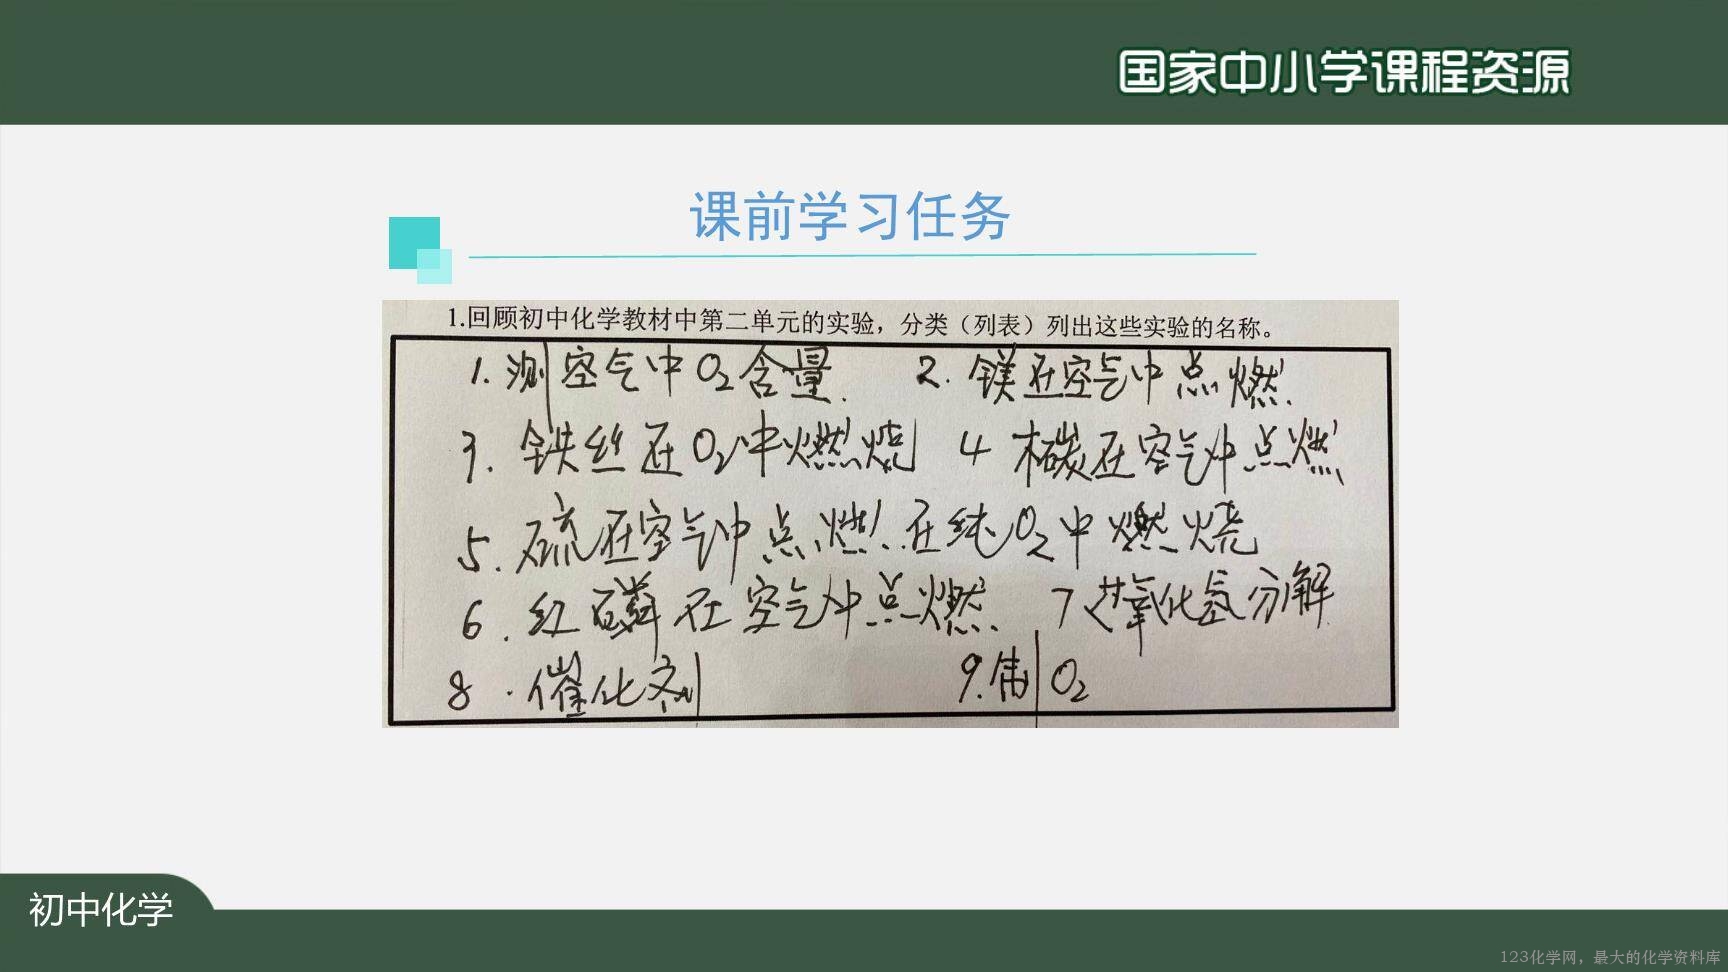 国家中小学课程资源
课前学习任务
1.回顾初中化学教材中第二单元的实验，分类（列表）列出这些实验的名称。
1. 测空气中O₂含量. 2. 镁在空气中点燃.
3. 铁丝在O₂中燃烧 4 木碳在空气中点燃
5. 硫在空气中点燃.在纯O₂中燃烧
6. 红磷在空气中点燃. 7 过氧化氢分解
8. 催化剂 9.制O₂
初中化学
123化学网，最大的化学资料库